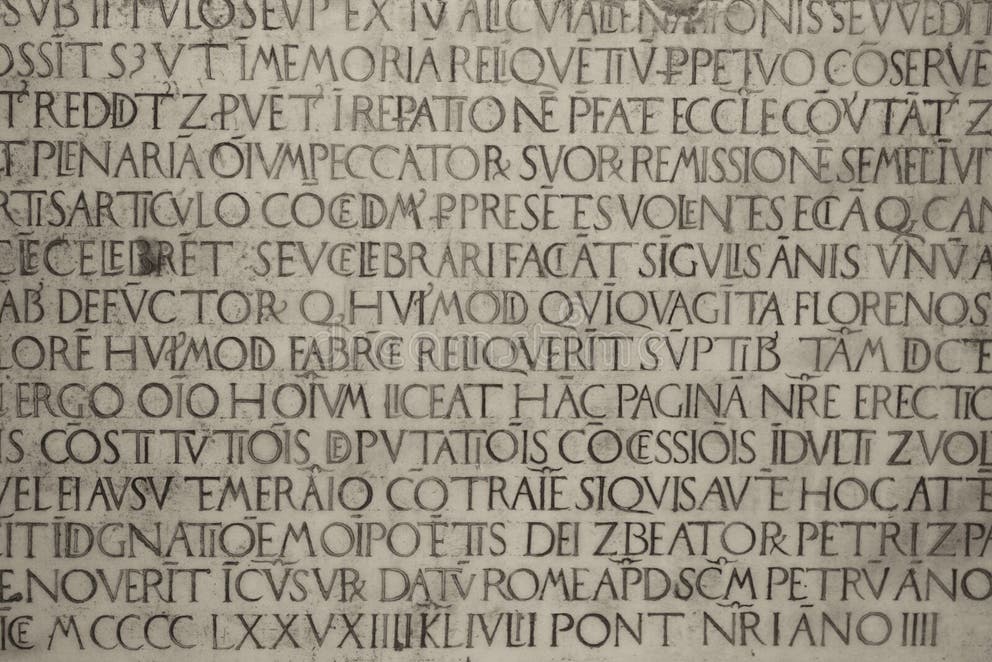 SVB TITVLOSEVP EX TV ALICVIALIENATIONISSEVVEDIT
OSSĪT S3VT ĪMEMORIĀ RELIQVĒTIV̄ PPETVO CŌSERVĒ
T' REDDĪT' Z PVĒT' Ī REPATIONĒ PFATE ECCLE CŌV'TĀT' Z
T PLENARIĀ ŌIVM PECCATOꝜ SVOꝜ REMISSIONĒ SEMEL Ī VIT
RTIS ARTICVLO CŌCEDIM' PPRESĒTES VOLENTES ECIĀ Q CAN
CLE CELEBRĒT SEV CELEBRARI FACIĀT SĪGVLIS ĀNIS VNV A
AB DEFVCTOꝜ Q HVI'MODI QVĪQVAGĪTA FLORENOS
LORĒ HVI'MODI FABRICE RELIQVERĪT SVPTIB TĀM DICTE
ERGO OĪO HOĪVM LICEAT HĀC PAGINĀ NR̄E ERECTIO
IS CŌSTITVTIŌIS DEPVTATIŌIS CŌCESSIŌIS ĪDVLTI Z VOL
VEL EI AVSV TEMERĀIO CŌTRAIĒ SIQVIS AVTĒ HOC ATTE
IT ĪDIGNATIŌĒ MOIPOĒTIS DEI Z BEATOꝜ PETRI Z PA
E NOVERĪT ĪCVSVꝜ DATV̄ ROME APD SC̄M PETRV ĀNO
ĪCE MCCCCLXXVXIIII KL IVLII PONT NR̄I ĀNO IIII